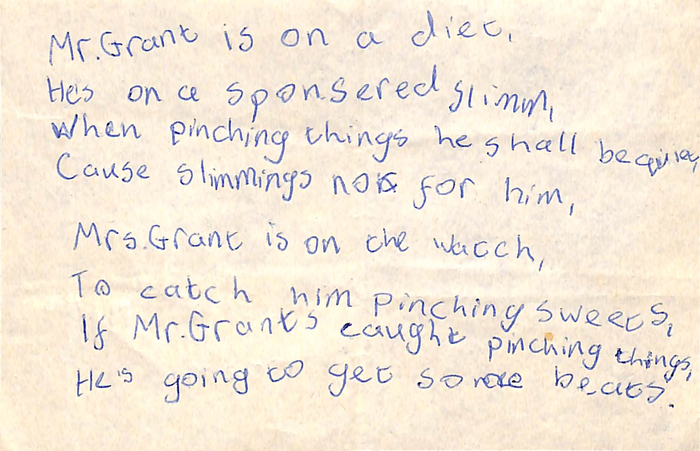 Mr.Grant is on a diet,
He's on a sponsered slimm,
When pinching things he shall be quiet,
Cause slimmings not for him,
Mrs.Grant is on the watch,
To catch him pinching sweets,
If Mr.Grants caught pinching things,
He's going to get some beats.